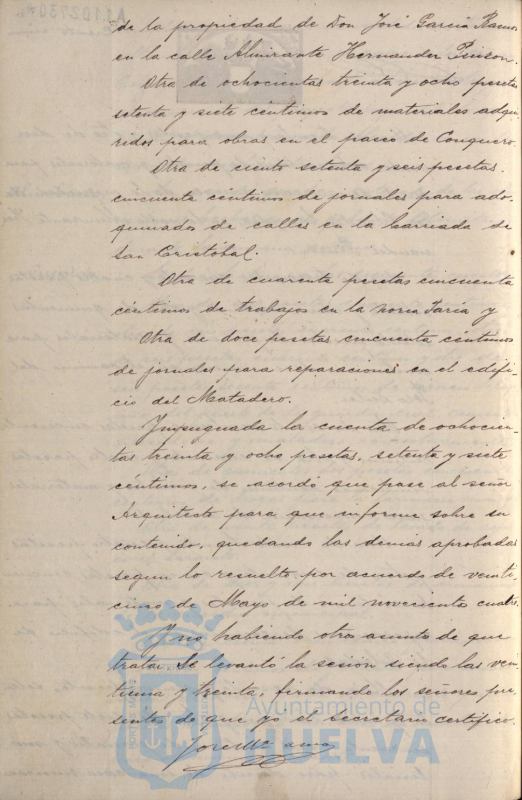 de la propiedad de Don José García Ramos
en la calle Almirante Hernandez Pinson.
Otra de ochocientas treinta y ocho pesetas
setenta y siete céntimos de materiales adqui
ridos para obras en el paseo de Conquero.
Otra de ciento setenta y seis pesetas.
cincuenta céntimos de jornales para ado-
quinados de calles en la barriada de
San Cristóbal.
Otra de cuarenta pesetas cincuenta
céntimos de trabajos en la noria y
Otra de doce pesetas cincuenta céntimos
de jornales para reparaciones en el edifi-
cio del Matadero.
Impugnada la cuenta de ochocien-
tas treinta y ocho pesetas, setenta y siete
céntimos, se acordó que pase al señor
Arquitecto para que informe sobre su
contenido, quedando las demas aprobadas
segun lo resuelto por acuerdo de veinti
cinco de Mayo de mil novecientos cuatro.
Y no habiendo otro asunto de que
tratar se levantó la sesión siendo las vein
tiuna y treinta, firmando los señores pre
sentes de que yo el Secretario certifico.
Ayuntamiento de
HUELVA